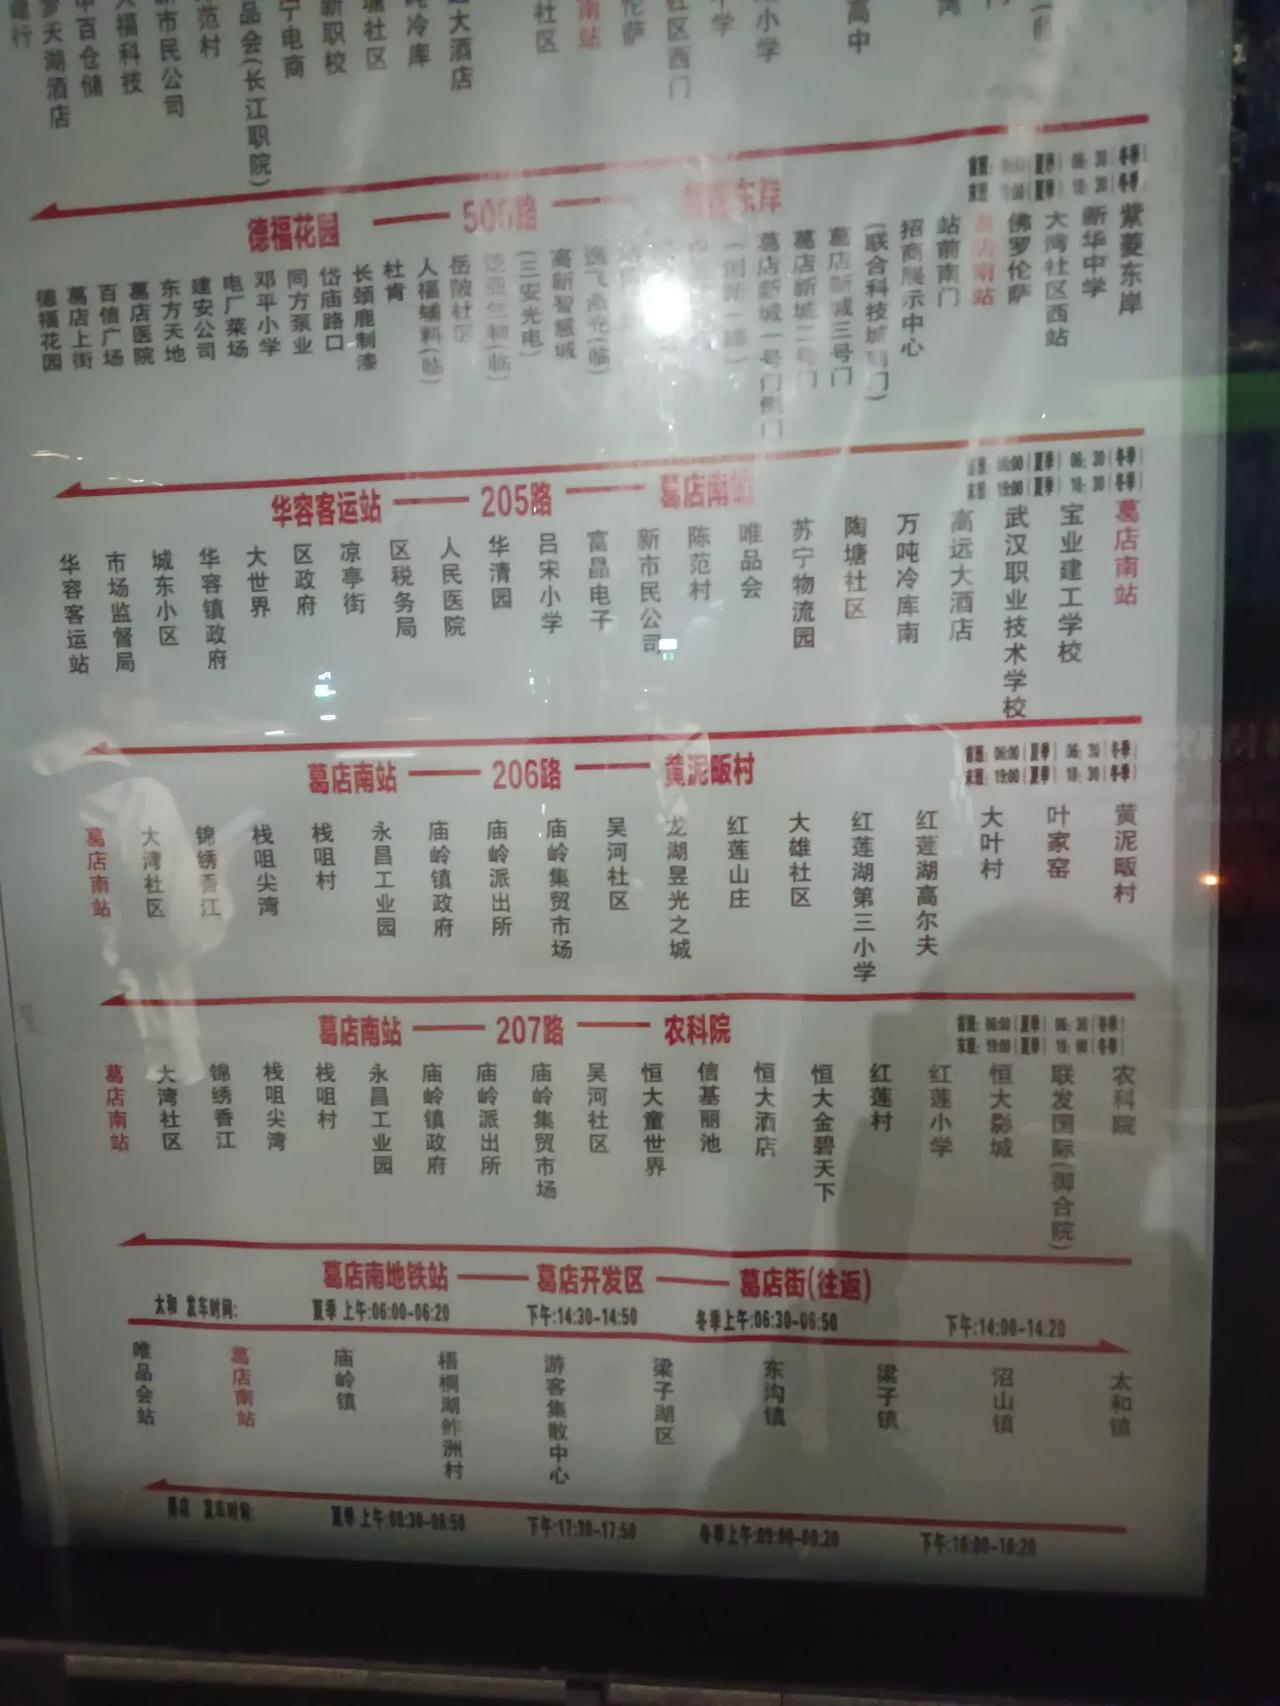 罗天湖酒店
中百仓储
人福科技
新市民公司
范村
品会(长江职院)
宁电商
新职校
塘社区
冷库
大酒店
社区
南站
伦萨
社区西门
小学
高中
湾
德福花园 —— 505路 —— 东岸
末班: 19:00(夏季) 18:30(冬季)
德福花园
葛店上街
百信广场
葛店医院
东方天地
建安公司
电厂菜场
邓平小学
同方泵业
岱庙路口
长颈鹿制漆
杜肯
人福辅料(临)
岳陂社区
(三安光电)
高新智慧城
葛店新城一号门侧门
葛店新城二号门
葛店新城三号门
(联合科技城南门)
招商展示中心
站前南门
葛店南站
佛罗伦萨
大湾社区西站
新华中学
紫菱东岸
华容客运站 —— 205路 —— 葛店南站
首班: 06:00(夏季) 06:30(冬季)
末班: 19:00(夏季) 18:30(冬季)
华容客运站
市场监督局
城东小区
华容镇政府
大世界
区政府
凉亭街
区税务局
人民医院
华清园
吕宋小学
富晶电子
新市民公司
陈范村
唯品会
苏宁物流园
陶塘社区
万吨冷库南
高远大酒店
武汉职业技术学校
宝业建工学校
葛店南站
葛店南站 —— 206路 —— 黄泥畈村
首班: 06:00(夏季) 06:30(冬季)
末班: 19:00(夏季) 18:30(冬季)
葛店南站
大湾社区
锦绣香江
栈咀尖湾
栈咀村
永昌工业园
庙岭镇政府
庙岭派出所
庙岭集贸市场
吴河社区
龙湖昱光之城
红莲山庄
大雄社区
红莲湖第三小学
红莲湖高尔夫
大叶村
叶家窑
黄泥畈村
葛店南站 —— 207路 —— 农科院
首班: 06:00(夏季) 06:30(冬季)
末班: 19:00(夏季) 19:00(冬季)
葛店南站
大湾社区
锦绣香江
栈咀尖湾
栈咀村
永昌工业园
庙岭镇政府
庙岭派出所
庙岭集贸市场
吴河社区
恒大童世界
信基丽池
恒大酒店
恒大金碧天下
红莲村
红莲小学
恒大影城
联发国际(御合院)
农科院
葛店南地铁站 —— 葛店开发区 —— 葛店街(往返)
太和 发车时间: 夏季 上午:06:00-06:20 下午:14:30-14:50 冬季上午:06:30-06:50 下午:14:00-14:20
唯品会站
葛店南站
庙岭镇
梧桐湖鲊洲村
游客集散中心
梁子湖区
东沟镇
梁子镇
沼山镇
太和镇
葛店 发车时间: 夏季 上午:08:30-08:50 下午:17:30-17:50 冬季上午:09:00-09:20 下午:16:00-16:20